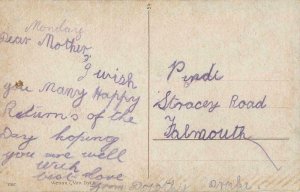 Monday
Dear Mother
I wish
you Many Happy
Return's of the
Day hoping
you are well
with
best love
from
Pindi
Stracey Road
Falmouth